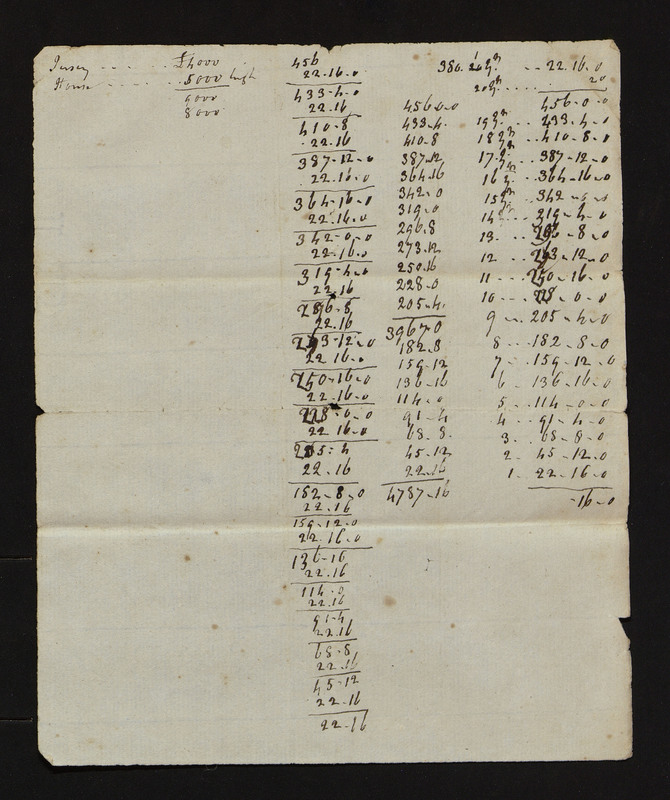 Jersey - - - - - £4000
House - - - - - 5000 high
9000
8000
456
22.16.0
433-4-0
22.16
410-8
22.16
387-12-0
22.16.0
364-16-0
22.16.0
342-0-0
22.16.0
319-4-0
22.16
296-8
22.16
273-12-0
22.16.0
250-16-0
22.16-0
228-0-0
22.16-0
205-4
22.16
182-8-0
22.16
159-12-0
22.16.0
136-16
22.16
114-0
22.16
91-4
22.16
68-8
22.16
45-12
22-16
22-16
456-0-0
433.4.
410.8
387.12
364.16
342-0
319-0
296.8
273.12
250.16
228-0
205-4.
3967-0
182.8
159-12
136-16
114-0
91-4
68-8.
45-12
22.16
4787-16
380. 20 - - 22.16.0
20 . . . . 20
456-0-0
19 . - 433-4-0
18 - - 410-8-0
17 - - 387-12-0
16 - - 364-16-0
15 - - 342-0-0
14 - - 219-4-0
13. - - 296-8-0
12 - - 273-12-0
11 - - 250-16-0
10 - - 228-0-0
9 - - 205-4-0
8 - - 182-8-0
7 - - 159-12-0
6 - - 136-16-0
5 - - 114-0-0
4 - - 91-4-0
3. - - 68-8-0
2 - 45-12-0
1 - 22-16-0
-16-0